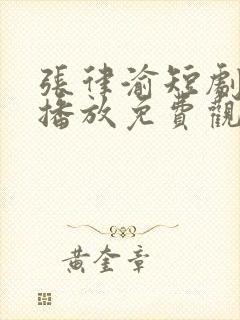 張律渝短劇
播放免費觀
黃奎章